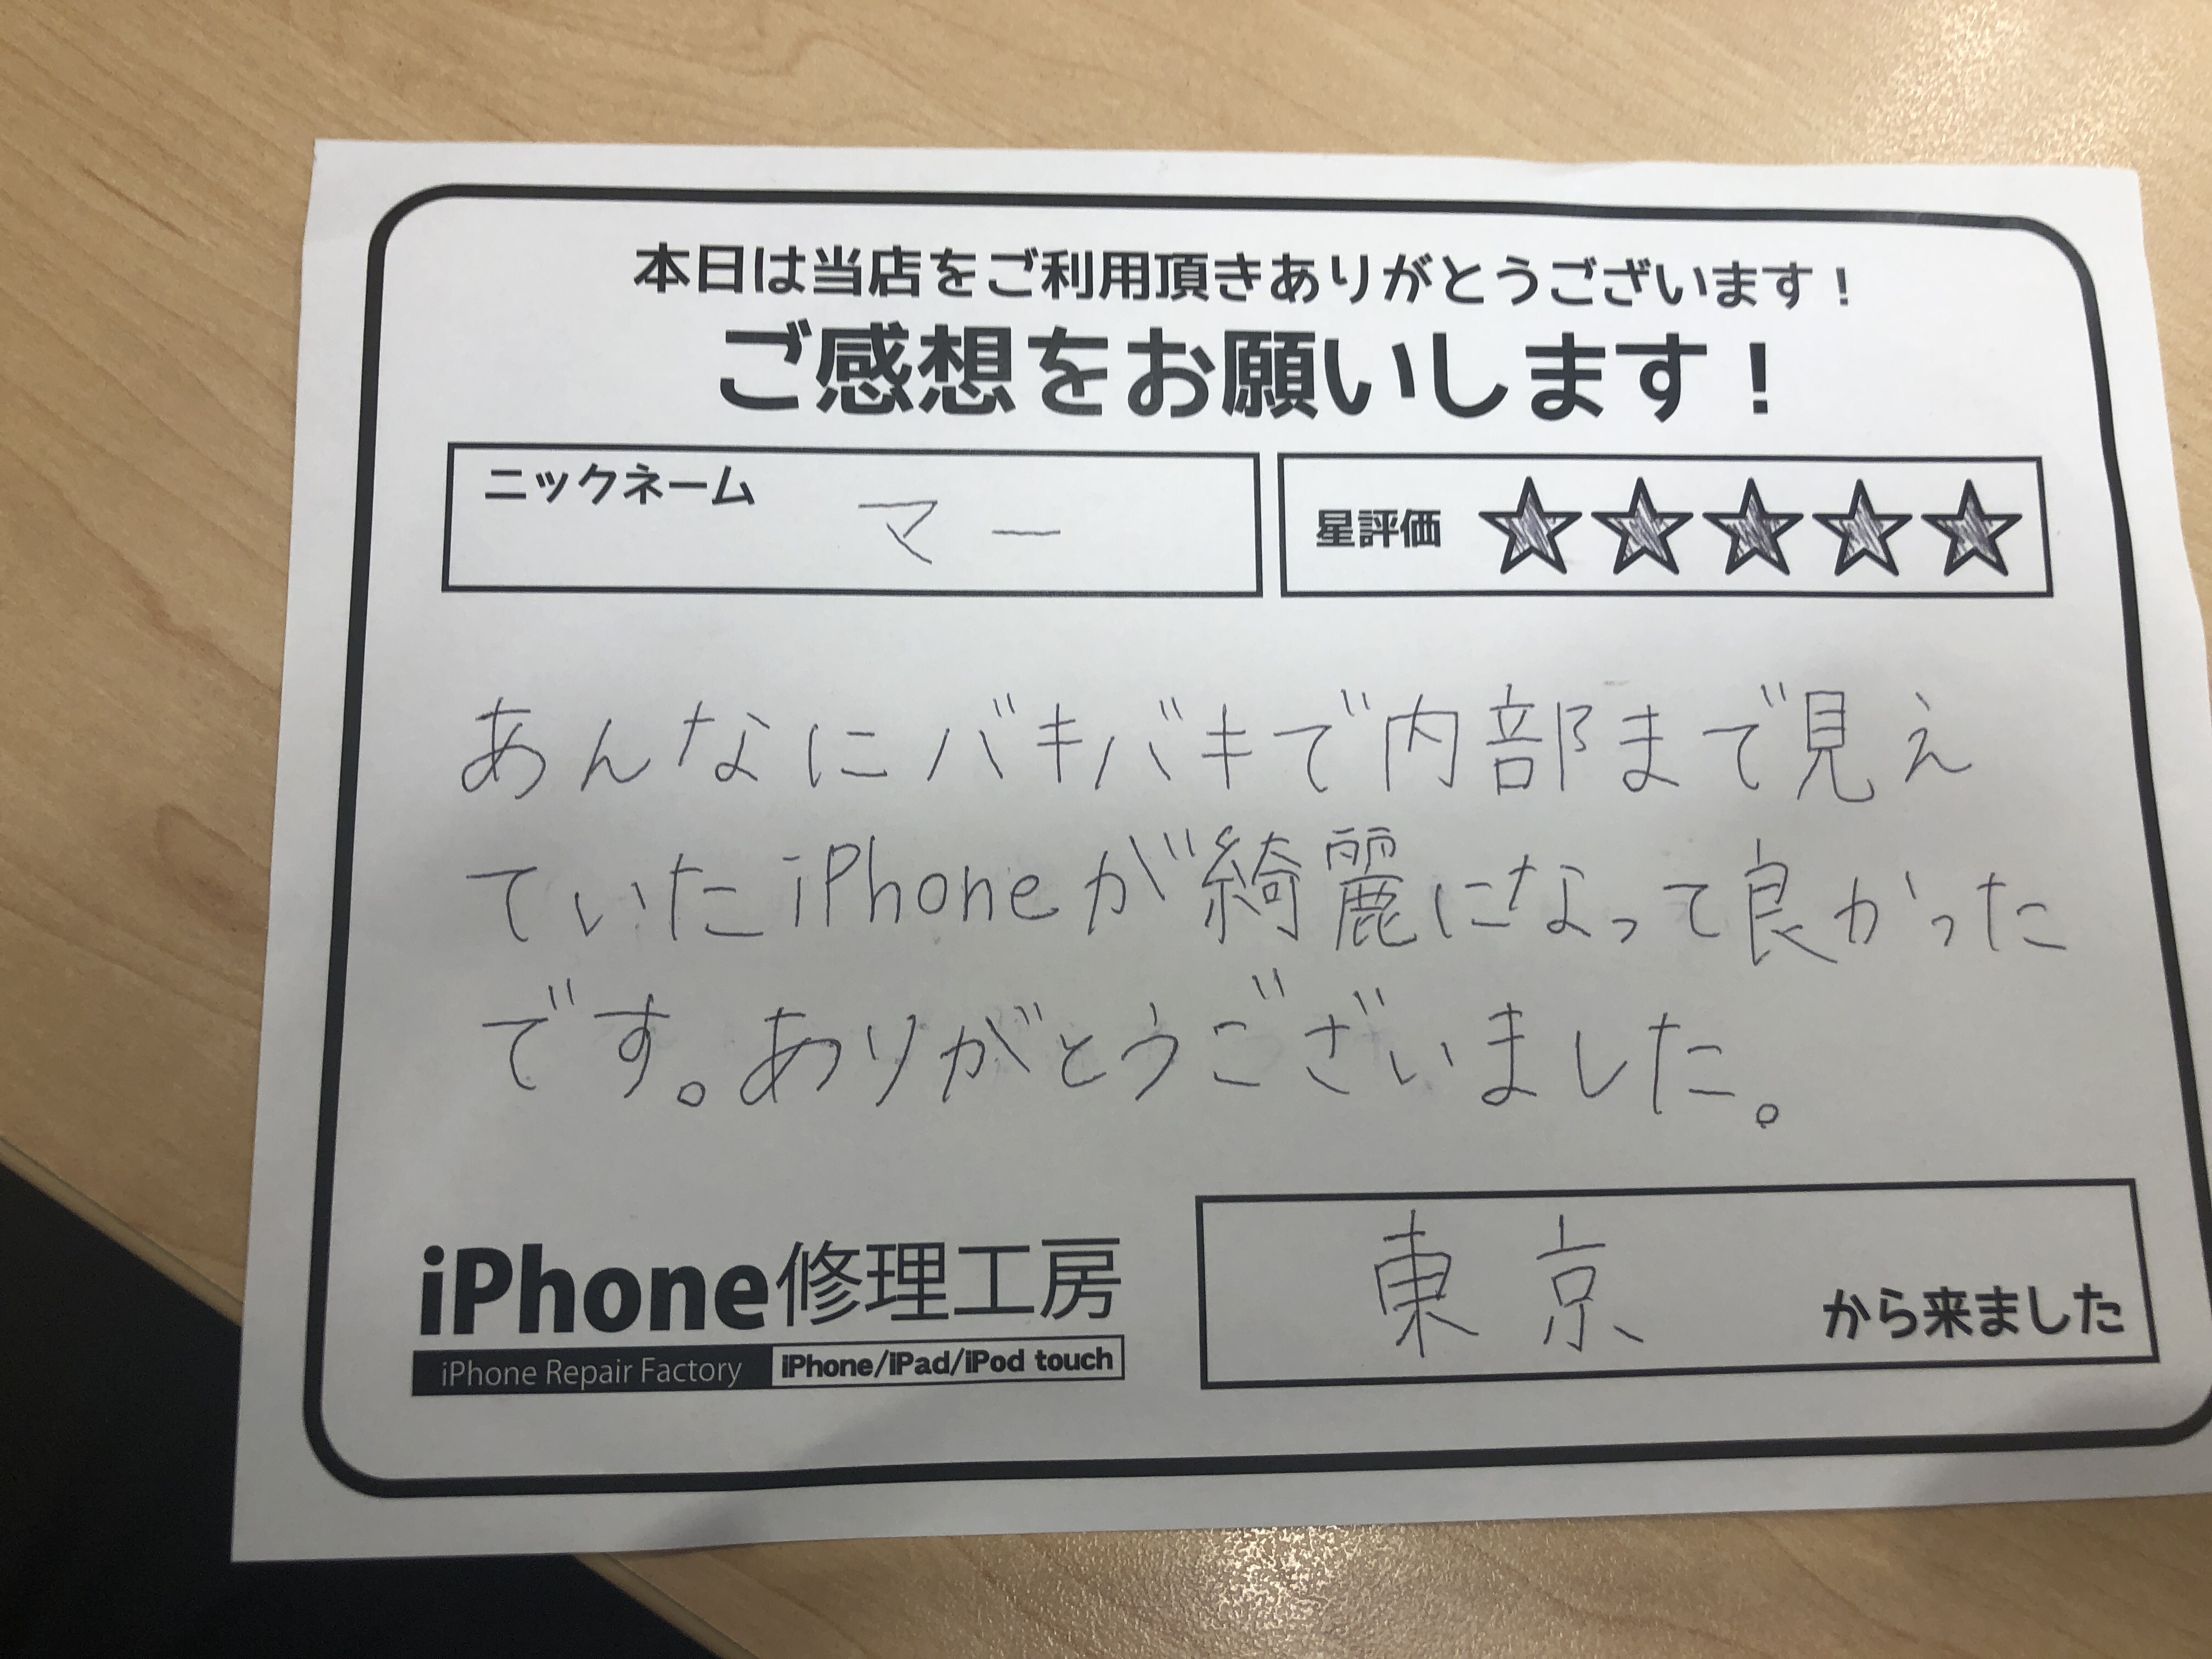 本日は当店をご利用頂きありがとうございます！
ご感想をお願いします！
ニックネーム マー
星評価 ★★★★★
あんなにバキバキで内部まで見え
ていたiPhoneが綺麗になって良かった
です。ありがとうございました。
iPhone修理工房
iPhone Repair Factory iPhone/iPad/iPod touch
東京 から来ました